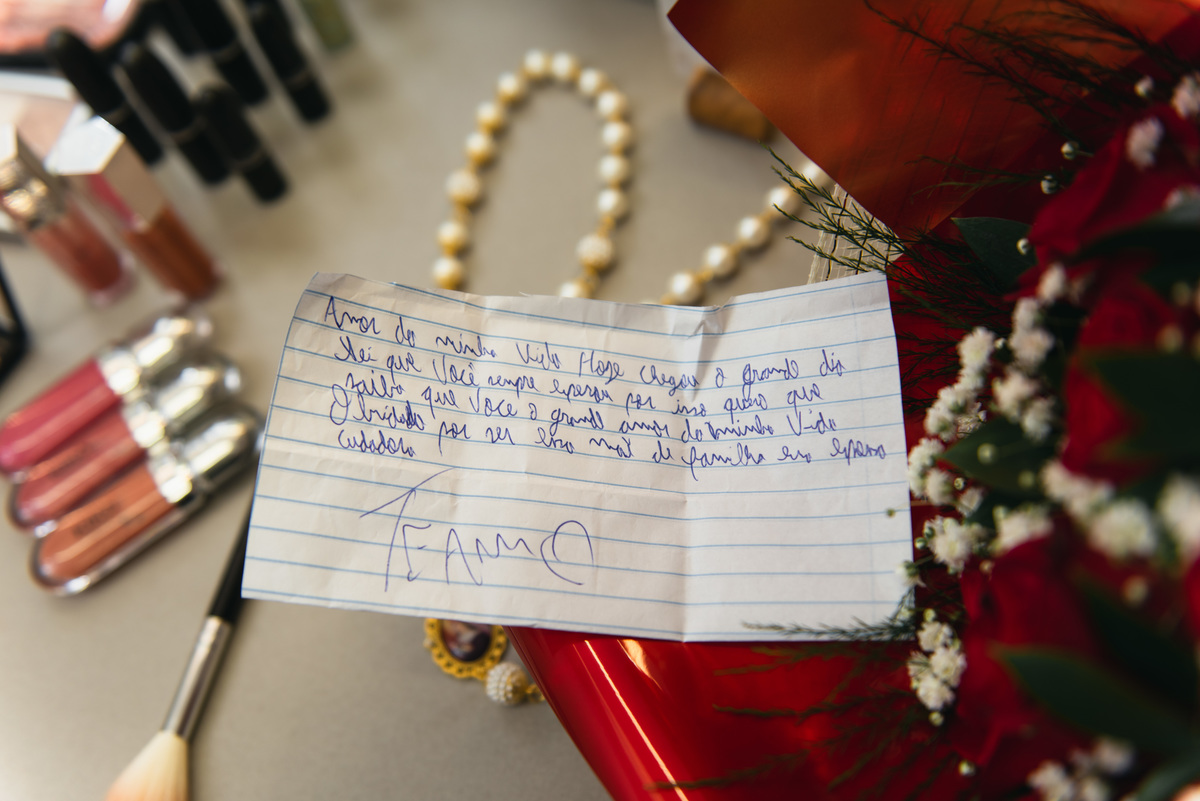 Amor da minha Vida Hoje chegou o grande dia
Sei que Você sempre esperou por isso quero que
saiba que Voce o grande amor da minha Vida
Obridado por ser essa mãe de familha era esposa
cuidadora
TE AMO